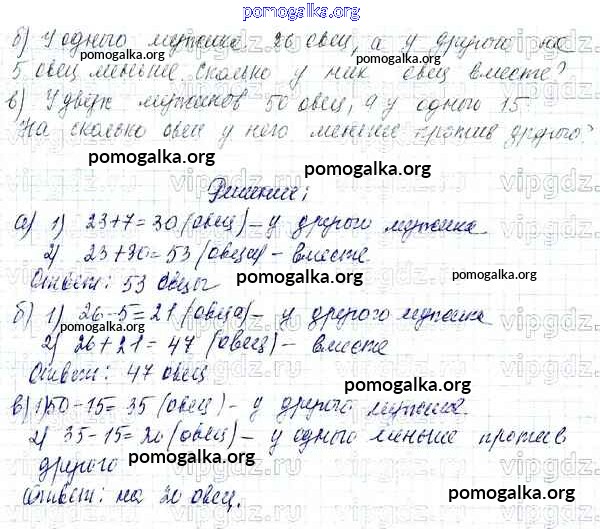 pomogalka.org
б) У одного мужика 26 овец, а у другого на
5 овец меньше. сколько у них овец вместе?
в) У двух мужиков 50 овец, а у одного 15.
На сколько овец у него меньше против другого?
pomogalka.org pomogalka.org
Решение:
pomogalka.org
а) 1) 23+7=30 (овец) – у другого мужика
2) 23+30=53 (овцы) – вместе
Ответ: 53 овцы pomogalka.org
б) 1) 26-5=21 (овца) – у другого мужика
pomogalka.org pomogalka.org
2) 26+21=47 (овец) – вместе
Ответ: 47 овец
pomogalka.org
в) 1) 50-15=35 (овец) – у другого мужика.
pomogalka.org
2) 35-15=20 (овец) – у одного меньше против
другого pomogalka.org
Ответ: на 20 овец.
pomogalka.org